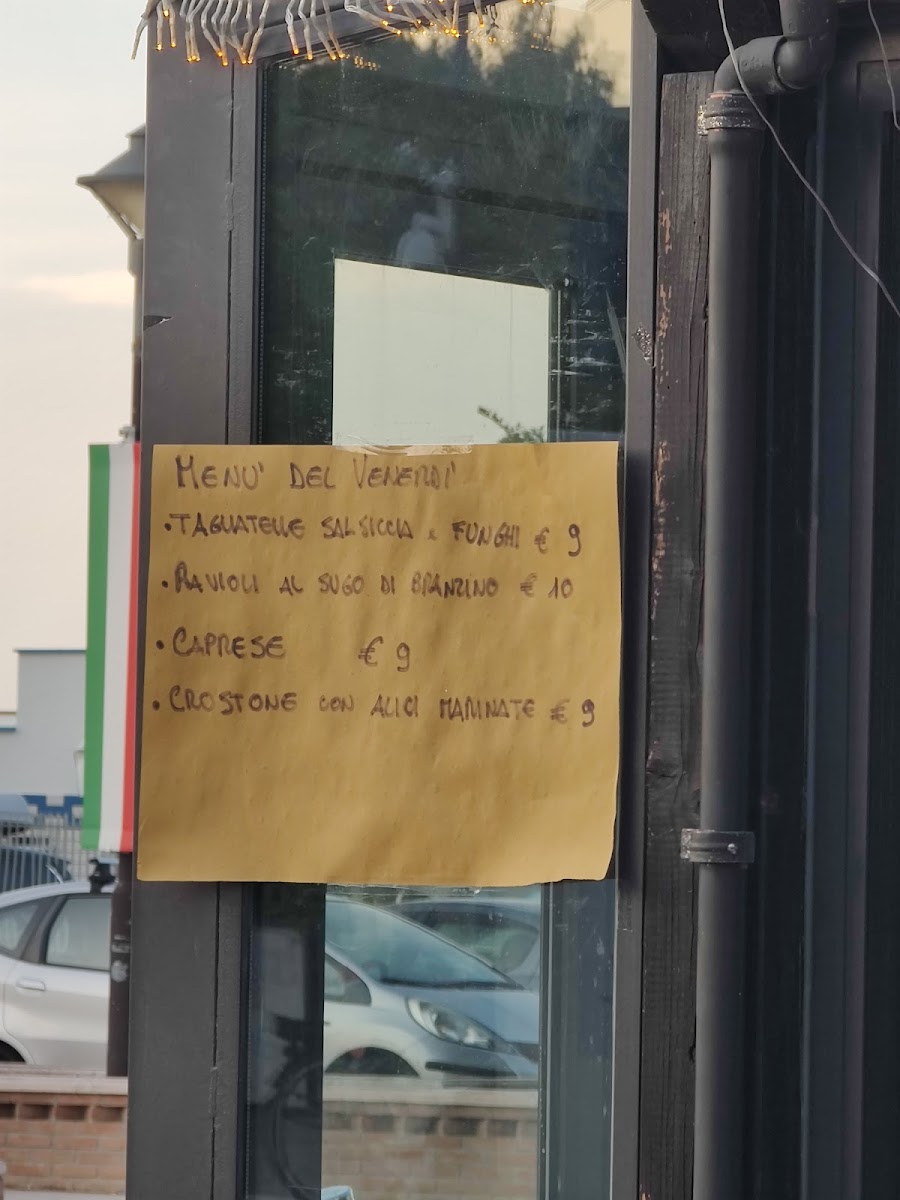 MENU' DEL VENERDI'
•TAGLIATELLE SALSICCIA e FUNGHI € 9
•RAVIOLI AL SUGO DI BRANZINO € 10
•CAPRESE € 9
•CROSTONE CON ALICI MARINATE € 9